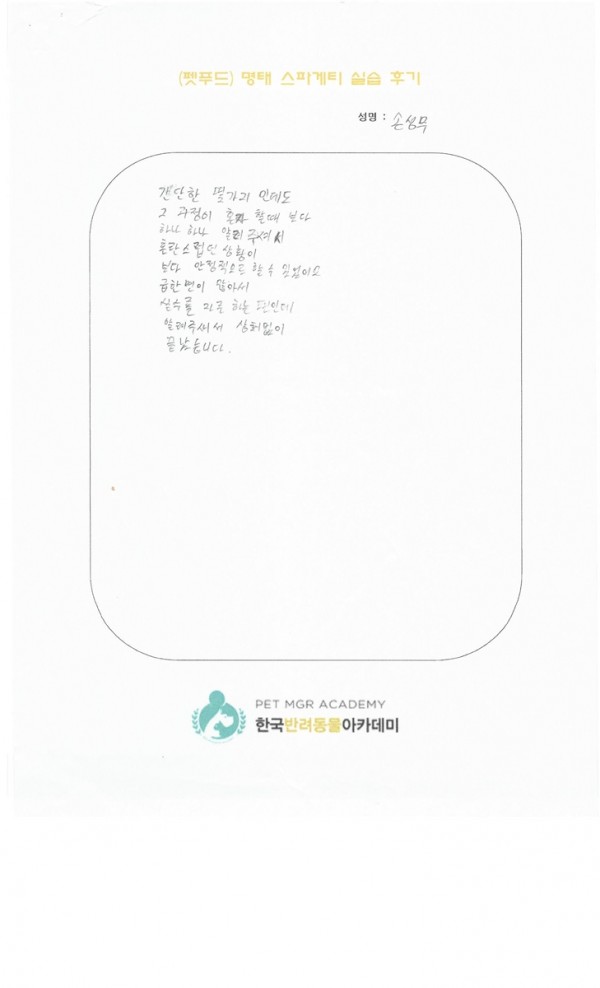 (펫푸드) 명태 스파게티 실습 후기
성명 : 손성무
간단한 먹거리 인데도
그 과정이 혼자 할때 보다
하나 하나 알려주셔서
혼란스럽던 상황이
보다 안정적으로 할 수 있었어요
급한면이 많아서
실수를 자주 하는 편인데
알려주셔서 상처없이
끝났습니다.
PET MGR ACADEMY
한국반려동물아카데미